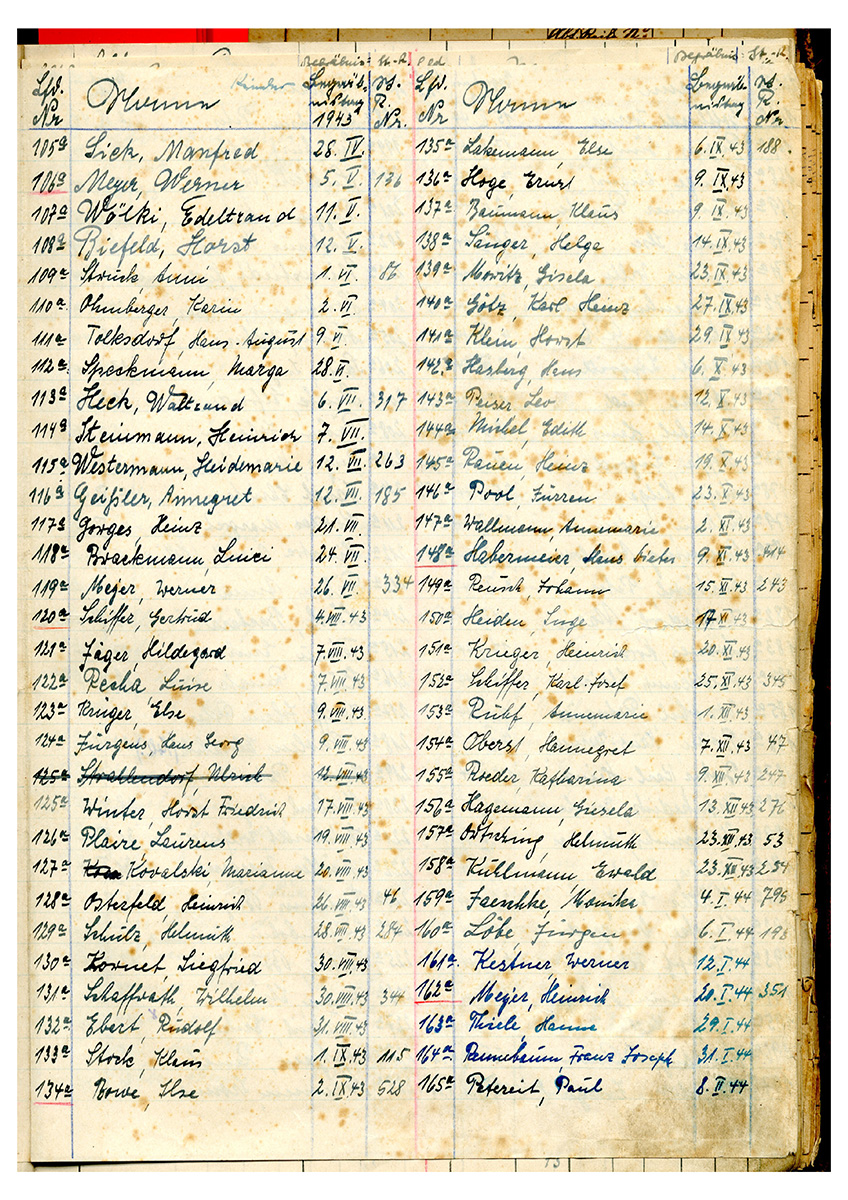 Begräbnis- St.-R.
Begräbnis St.-R.
Lfd. Nr Name Kinder Begräbnistag 1943 St. R. Nr.
105a Sick, Manfred 28. IV.
106a Meyer, Werner 5. V. 136
107a Wölki, Edeltraud 11. V.
108a Biefeld, Horst 12. V.
109a Struck, Anni 1. VI. 86
110a Ohmberger, Karin 2. VI
111a Tolksdorf, Hans-August 9. VI
112a Speckmann, Marga 28. VI.
113a Heck, Waltraud 6. VII. 317
114a Steinmann, Heinrich 7. VII.
115a Westermann, Heidemarie 12. VII. 263
116a Geißler, Annegret 12. VII. 185
117a Gorges, Heinz 21. VII.
118a Brackmann, 24. VII.
119a Meyer, Werner 26. VII 334
120a Schiffer, Gertrud 4. VIII. 43
121a Jäger, Hildegard 7. VIII. 43
122a Pecha Luise 7. VIII. 43
123a Krüger, Else 9. VIII. 43
124a Jürgens, Hans Georg 9. VIII. 43
125a Strallendorf, Ulrich 12. VIII. 43
125a Winter, Horst Friedrich 17. VIII. 43
126a Plaire, Laurens 19. VIII. 43
127a Kovalski, Marianne 20. VIII. 43
128a Osterfeld, Heinrich 26. VIII. 43 46
129a Schulz, Helmuth 28. VIII. 43 284
130a Kornet, Siegfried 30. VIII. 43
131a Schaffrath, Wilhelm 30. VIII. 43 344
132a Ebert, Rudolf 31. VIII. 43
133a Stock, Klaus 1. IX. 43 115
134a Rowe, Ilse 2. IX. 43 528
Lfd. Nr Name Begräbnistag St. R. Nr.
135a Lakemann, Else 6. IX. 43 188
136a Hoge, Ernst 9. IX. 43
137a Baumann, Klaus 9. IX. 43
138a Sänger, Helga 14. IX. 43
139a Moritz, Gisela 23. IX. 43
140a Götz, Karl Heinz 27. IX. 43
141a Klein, Horst 29. IX 43
142a Hasberg, Hans 6. X. 43
143a Peiser, Leo 12. X. 43
144a Michel, Edith 14. X. 43
145a Rauen, Heinz 19. X. 43
146a Pool, Jurren 23. X. 43
147a Wallmann, Annemarie 2. XI. 43
148a Habermeier, Hans Dieter 9. XI. 43 414
149a Reusch, Johann 15. XI. 43 243
150a Heiden, Inge 17 XI. 43
151a Krieger, Heinrich 20. XI. 43
152a Schiffer, Karl-Josef 25. XI. 43 345
153a Ruhf, Annemarie 1. XII. 43
154a Oberst, Hannegret 7. XII. 43 47
155a Roeder, Katharina 9. XII. 43 247
156a Hagemann, Giesela 13. XII 43 276
157a Helmuth 23. XII. 43 53
158a Kuhlmann, Ewald 23. XII. 43 254
159a Jaeschke, Monika 4. I. 44 795
160a Löbe, Jürgen 6. I. 44 193
161a Kestner, Werner 12. I. 44
162a Meyer, Heinrich 20. I. 44 351
163a Thiele, Hanne 29. I. 44
164a Rennebaum, Franz Joseph 31. I. 44
165a Petereit, Paul 8. II. 44